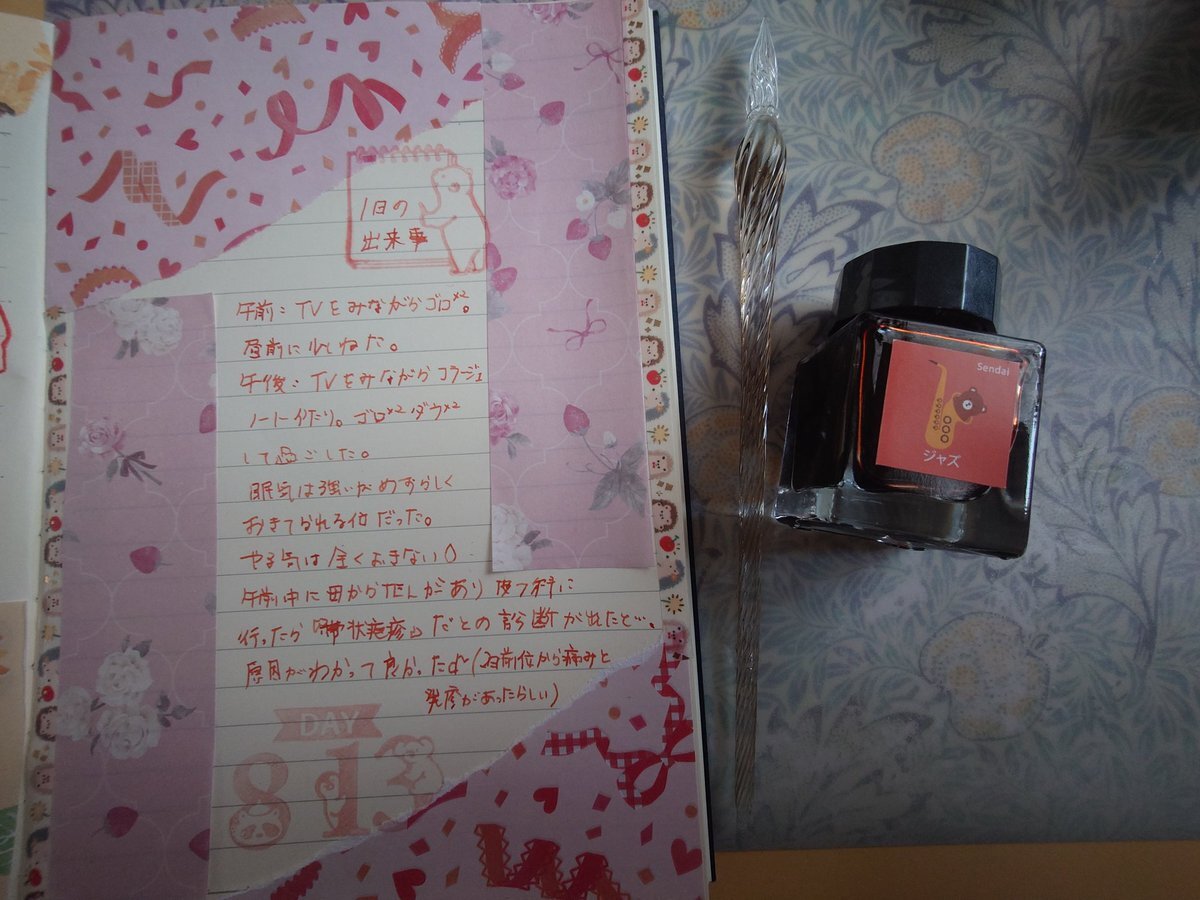 1日の
出来事
午前：TVをみながらゴロ×2。
昼前に少しねた。
午後：TVをみながらコラージュ
ノート作だり。ゴロ×2 ダラ×2
して過ごした。
眠気は強いがめずらしく
おきてられる位だった。
やる気は全くおきない
午前中に母からTELがあり皮フ科に
行ったら『帯状疱疹』だとの診断が出たと…。
原因がわかって良かった (3日前位から痛みと
発疹があったらしい)
DAY
813
Sendai
ジャズ